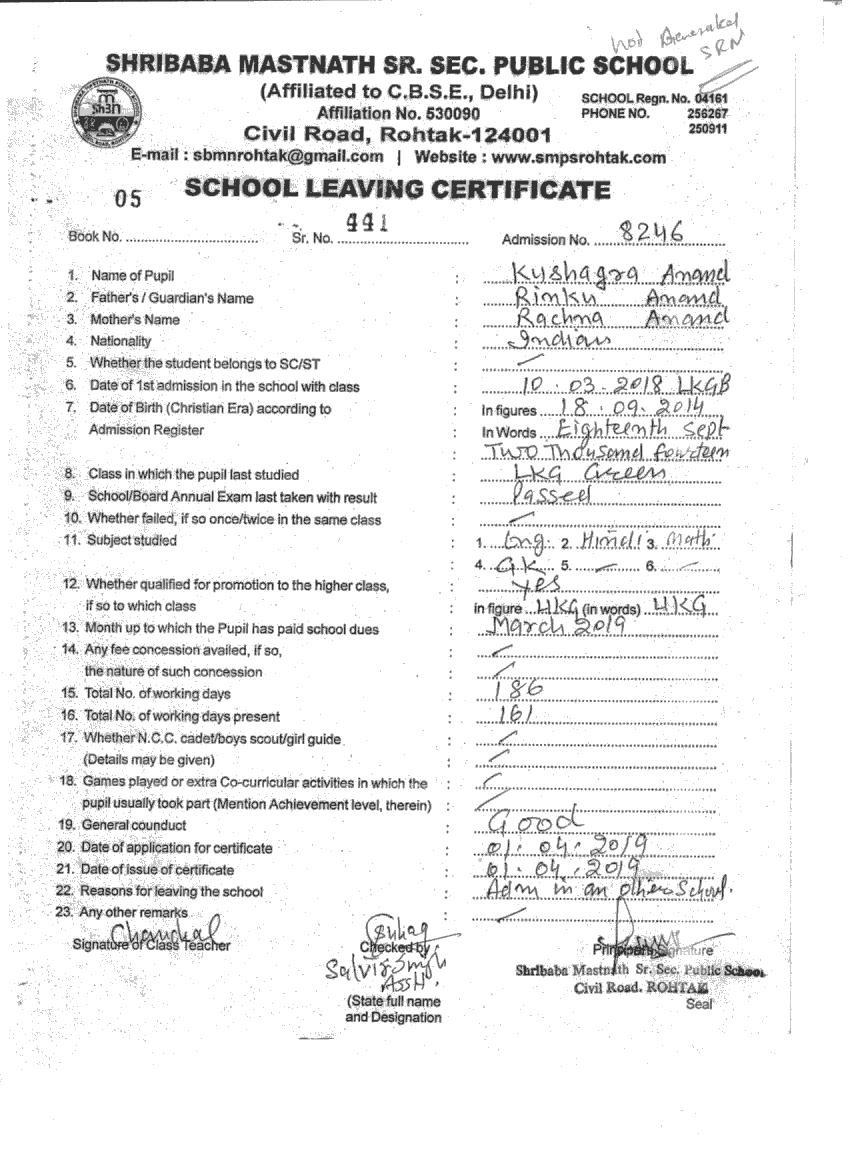 not Generated
SRN
SHRIBABA MASTNATH SR. SEC. PUBLIC SCHOOL
(Affiliated to C.B.S.E., Delhi)
Affiliation No. 530090
SCHOOL Regn. No. 04161
PHONE NO. 256267
250911
Civil Road, Rohtak-124001
E-mail : sbmnrohtak@gmail.com | Website : www.smpsrohtak.com
SCHOOL LEAVING CERTIFICATE
Book No. 05 Sr. No. 441 Admission No. 8246
1. Name of Pupil : Kushagra Anand
2. Father's / Guardian's Name : Rinku Anand
3. Mother's Name : Rachna Anand
4. Nationality : Indian
5. Whether the student belongs to SC/ST :
6. Date of 1st admission in the school with class : 10.03.2018 LKGB
7. Date of Birth (Christian Era) according to : In figures 18.09.2014
Admission Register In Words Eighteenth Sept
Two Thousand fourteen
8. Class in which the pupil last studied : LKG Green
9. School/Board Annual Exam last taken with result : Passed
10. Whether failed, if so once/twice in the same class :
11. Subject studied : 1. Eng. 2. Hindi 3. Math
4. G.K. 5. 6.
12. Whether qualified for promotion to the higher class, : Yes
if so to which class in figure UKG (in words) UKG
13. Month up to which the Pupil has paid school dues : March 2019
14. Any fee concession availed, if so, :
the nature of such concession :
15. Total No. of working days : 186
16. Total No. of working days present : 161
17. Whether N.C.C. cadet/boys scout/girl guide :
(Details may be given) :
18. Games played or extra Co-curricular activities in which the :
pupil usually took part (Mention Achievement level, therein) :
19. General counduct : Good
20. Date of application for certificate : 01.04.2019
21. Date of issue of certificate : 01.04.2019
22. Reasons for leaving the school : Adm in an other School.
23. Any other remarks :
Chanchal
Signature of Class Teacher
Checked by
(State full name
and Designation
Signature
Shribaba Mastnath Sr. Sec. Public School
Civil Road, ROHTAK
Seal